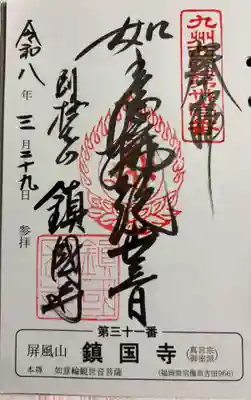 奉拝
如意輪観世音
令和八年三月二十九日参拝
屏風山
鎮國寺
第三十一番
屏風山 鎮国寺 (真言宗御室派)
本尊 如意輪観世音菩薩 (福岡県宗像市吉田966)